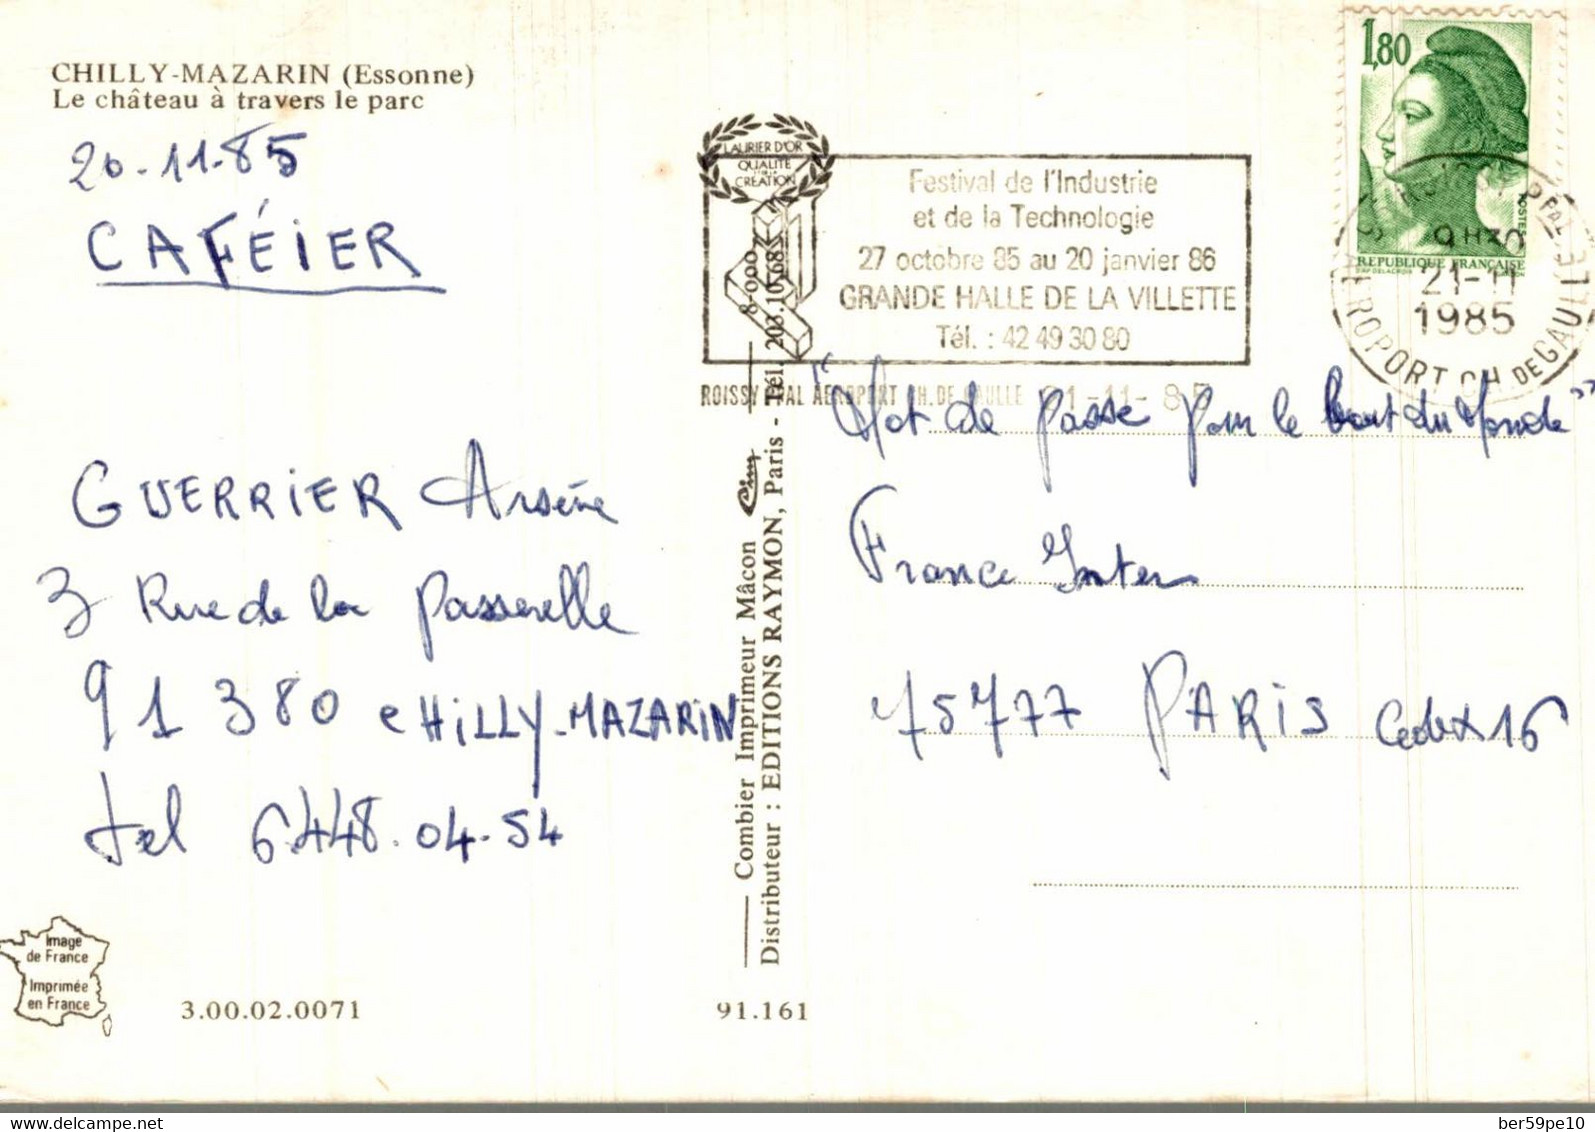 CHILLY-MAZARIN (Essonne)
Le château à travers le parc
20.11.85
CAFÉIER
GUERRIER Arsène
3 Rue de la Passerelle
91 380 CHILLY-MAZARIN
tel 6.448.04.54
Image
de France
Imprimée
en France
3.00.02.0071
91.161
Combier Imprimeur Mâcon
Distributeur : EDITIONS RAYMON, Paris - Tél. 203.10.68
8-000
LAURIER D'OR
QUALITÉ
CRÉATION
Festival de l'Industrie
et de la Technologie
27 octobre 85 au 20 janvier 86
GRANDE HALLE DE LA VILLETTE
Tél. : 42 49 30 80
ROISSY PPAL AEROPORT CH. DE GAULLE 21-11-85
1,80
POSTES
REPUBLIQUE FRANÇAISE
21-11
1985
AEROPORT CH DE GAULLE
"Mot de passe pour le bout du Monde"
France Inter
75777 PARIS Cedex 16
ber59pe10